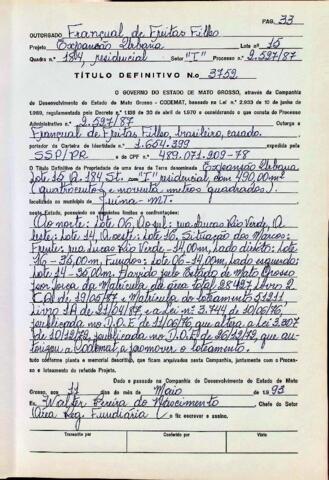 PAG. 33
OUTORGADO Francual de Freitas Filho
Projeto Expansão Urbana Lote nº 15
Quadra n.º 184, residencial Setor "I" Processo n.º 2.597/87
TÍTULO DEFINITIVO N.º 3752
O GOVERNO DO ESTADO DE MATO GROSSO, através da Companhia
de Desenvolvimento do Estado de Mato Grosso - CODEMAT, baseado na Lei n.º 2.933 de 10 de junho de
1969, regulamentada pelo Decreto n.º 1.138 de 30 de abril de 1970 e considerando o que consta do Processo
Administrativo n.º 2.597/87 Outorga a
Francual de Freitas Filho, brasileiro, casado.
portador da Carteira de Identidade n.º 1.654.399 expedida pela
SSP/PR. e do CPF n.º 489.071.909-78
O Título Definitivo de Propriedade de uma área de Terra denominada Expansão Urbana
Lote 15 Q. 184 St. "I" residencial com 490,00m²
(quatrocentos e noventa metros quadrados).
localizado no município de Juína-MT.
neste Estado, possuindo os seguintes limites e confrontações:
(Ao norte: Lote 06, Ao sul: rua Lucas Rio Verde, A
leste: Lote 14, A oeste: Lote 16, Situação dos Marcos:
Frente: rua Lucas Rio Verde - 14,00m, Lado direito: Lote
16 - 35,00m, Fundos: Lote 06 - 14,00m, Lado esquerdo:
Lote 14 - 35,00m. Havido pelo Estado de Mato Grosso
por força da Matrícula da área total 28427 Livro 2
de 19/06/87 e Matrícula do loteamento 51211,
Livro 1A de 21/04/87 e Lei nº 3.744 de 10/06/76,
publicada no D.O.E de 11/06/76 que altera a Lei 3.307
de 10/12/72, publicada no D.O.E de 26/12/72, que au-
torizou a Codemat, a promover o loteamento.
tudo conforme planta e memorial descrito, que ficam arquivados nesta Companhia, juntamente com o Proces-
so e loteamento do referido Projeto.
Dado e passado na Companhia de Desenvolvimento do Estado de Mato
Grosso, aos 11 dias de Maio de 1.993
Eu, Walter Pereira do Nascimento Chefe do Setor
Área Reg. Fundiária (, fiz escrever e assino.
Transcrito por
Conferido por
Visto